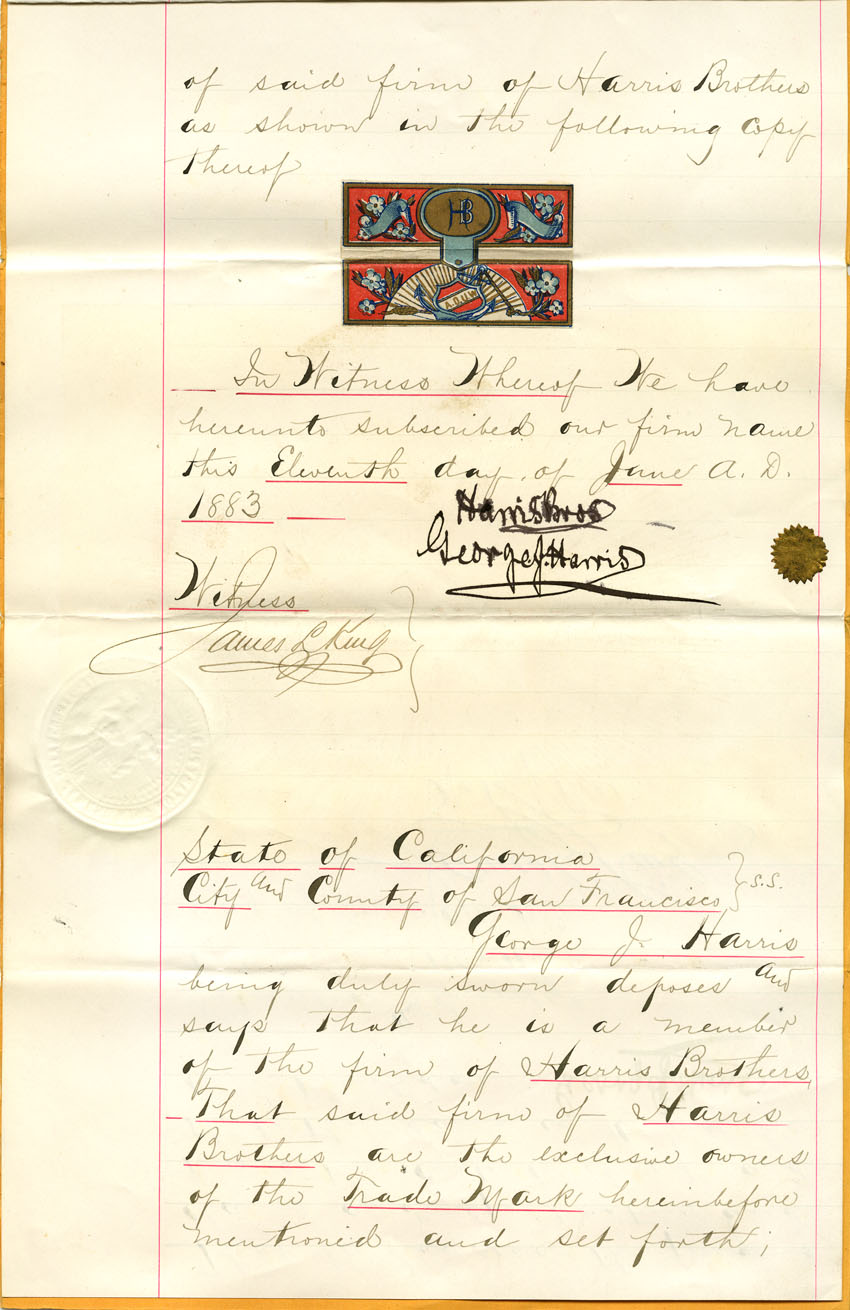 of said firm of Harris Brothers
as shown in the following copy
thereof
HB
A.O.U.W.
In Witness Whereof We have
hereunto subscribed our firm name
this Eleventh day of June A. D.
1883
Harris Bros
George J. Harris
Witness
James L King
State of California
City and County of San Francisco } s.s.
George J. Harris
being duly sworn deposes and
says that he is a member
of the firm of Harris Brothers,
That said firm of Harris
Brothers are the exclusive owners
of the Trade Mark hereinbefore
mentioned and set forth;